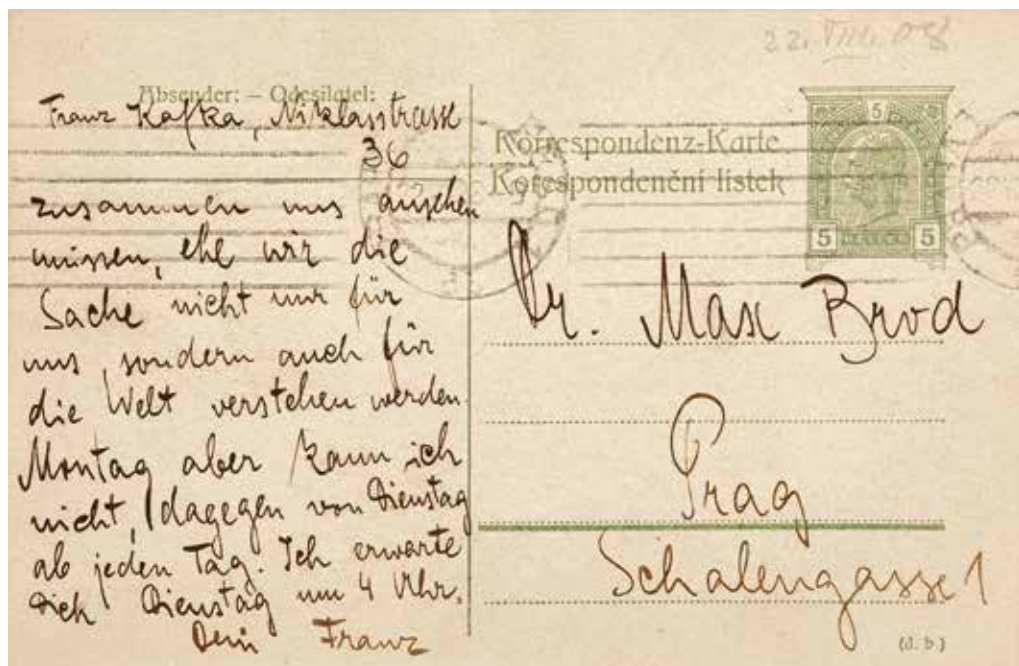 22. VIII. 08
Absender: – Odesílatel:
Franz Kafka, Niklasstrasse
36
zusammen uns ansehen
müssen, ehe wir die
Sache nicht nur für
uns, sondern auch für
die Welt verstehen werden.
Montag aber kann ich
nicht, dagegen von Dienstag
ab jeden Tag. Ich erwarte
Dich Dienstag um 4 Uhr.
Dein Franz
Korrespondenz-Karte
Korespondenční lístek
5
5 5
Dr. Max Brod
Prag
Schalengasse 1
(d. b.)